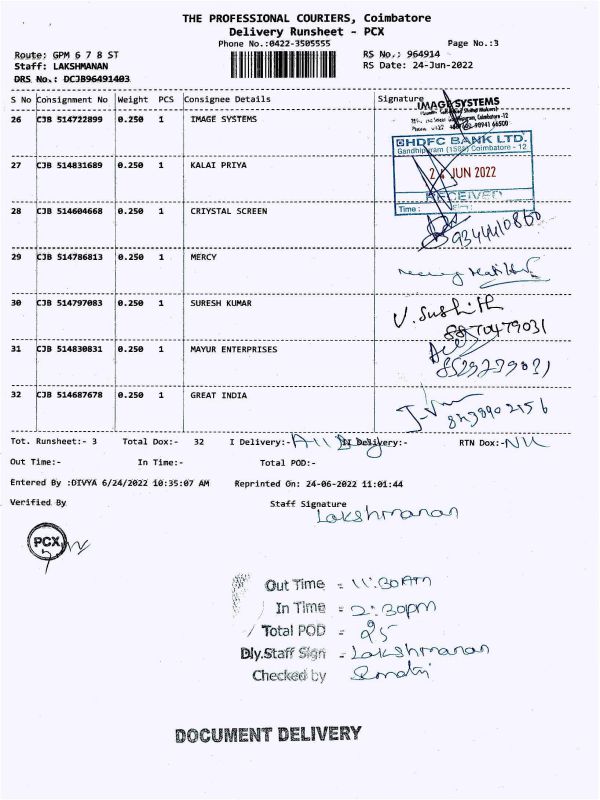 THE PROFESSIONAL COURIERS, Coimbatore
Delivery Runsheet - PCX
Phone No.:0422-3505555
Page No.:3
Route: GPM 6 7 8 ST
RS No.: 964914
Staff: LAKSHMANAN
RS Date: 24-Jun-2022
DRS No.: DCJB96491403
S No Consignment No Weight PCS Consignee Details Signature
IMAGE SYSTEMS
26 CJB 514722899 0.250 1 IMAGE SYSTEMS
HDFC BANK LTD.
Gandhipuram (1588) Coimbatore - 12
27 CJB 514831689 0.250 1 KALAI PRIYA
24 JUN 2022
RECEIVED
Time :
28 CJB 514604668 0.250 1 CRIYSTAL SCREEN
29 CJB 514786813 0.250 1 MERCY
30 CJB 514797083 0.250 1 SURESH KUMAR
V. Sushith
8870479031
31 CJB 514830831 0.250 1 MAYUR ENTERPRISES
32 CJB 514687678 0.250 1 GREAT INDIA
8438902156
Tot. Runsheet:- 3 Total Dox:- 32 I Delivery:- All II Delivery:- RTN Dox:- Nil
Out Time:- In Time:- Total POD:-
Entered By :DIVYA 6/24/2022 10:35:07 AM Reprinted On: 24-06-2022 11:01:44
Verified By Staff Signature
Lakshmanan
PCX
Out Time = 11:30AM
In Time = 2:30pm
Total POD = 25
Dly.Staff Sign - Lakshmanan
Checked by
DOCUMENT DELIVERY